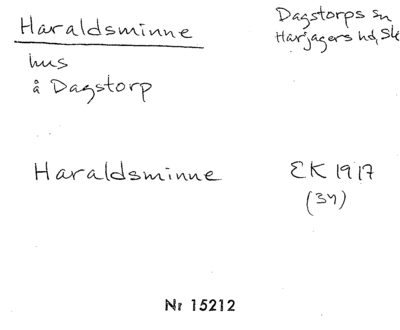 Haraldsminne
Dagstorps sn
Harjagers hd, Sk
hus
å Dagstorp
Haraldsminne
EK 1917
(34)
Nr 15212